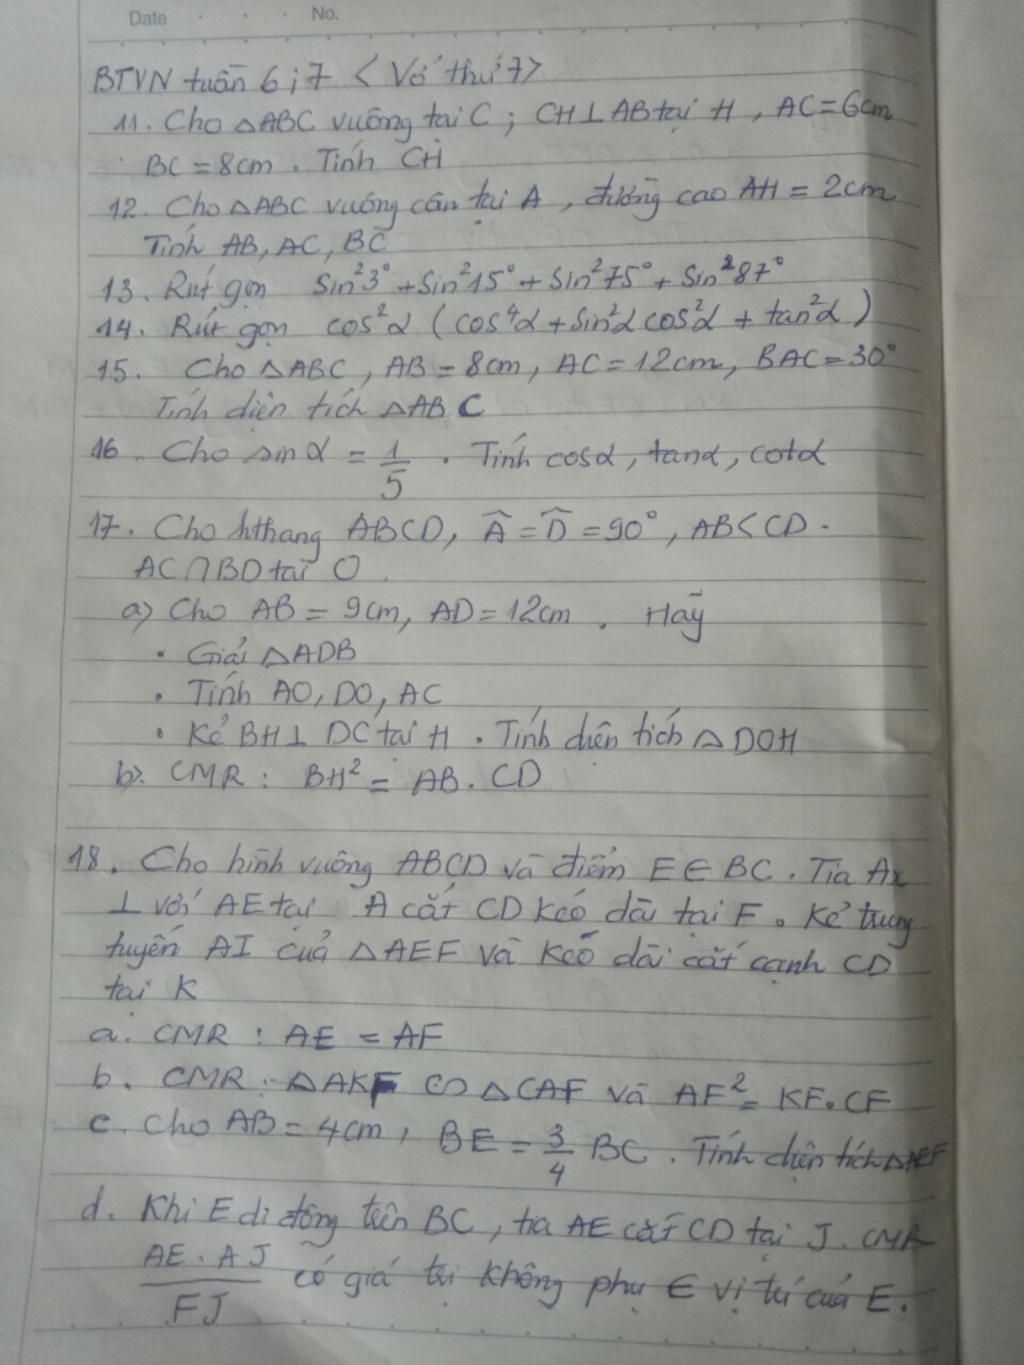 Date No.
BTVN tuần 6 ; 7 < Vở thứ 7>
11. Cho △ABC vuông tại C ; CH ⊥ AB tại H , AC = 6cm
BC = 8cm . Tính CH
12. Cho △ABC vuông cân tại A , đường cao AH = 2cm
Tính AB, AC, BC
13. Rút gọn Sin²3° + Sin²15° + Sin²75° + Sin²87°
14. Rút gọn cos²α ( cos⁴α + sin²α cos²α + tan²α )
15. Cho △ABC , AB = 8cm , AC = 12cm , BAC = 30°
Tính diện tích △ABC
16. Cho sin α = 1/5 . Tính cosα , tanα , cotα
17. Cho hthang ABCD, Â = D̂ = 90° , AB < CD .
AC ∩ BD tại O .
a) Cho AB = 9cm, AD = 12cm . Hãy
• Giải △ADB
• Tính AO, DO, AC
• Kẻ BH ⊥ DC tại H . Tính diện tích △ DOH
b). CMR : BH² = AB . CD
18. Cho hình vuông ABCD và điểm E ∈ BC . Tia Ax
⊥ với AE tại A cắt CD kéo dài tại F . Kẻ trung
tuyến AI của △AEF và kéo dài cắt cạnh CD
tại K
a. CMR : AE = AF
b. CMR : △AKF ∽ △CAF và AF² = KF . CF
c. Cho AB = 4cm , BE = 3/4 BC . Tính diện tích △AEF
d. Khi E di động trên BC , tia AE cắt CD tại J . CMR
AE . AJ / FJ có giá trị không phụ ∈ vị trí của E .